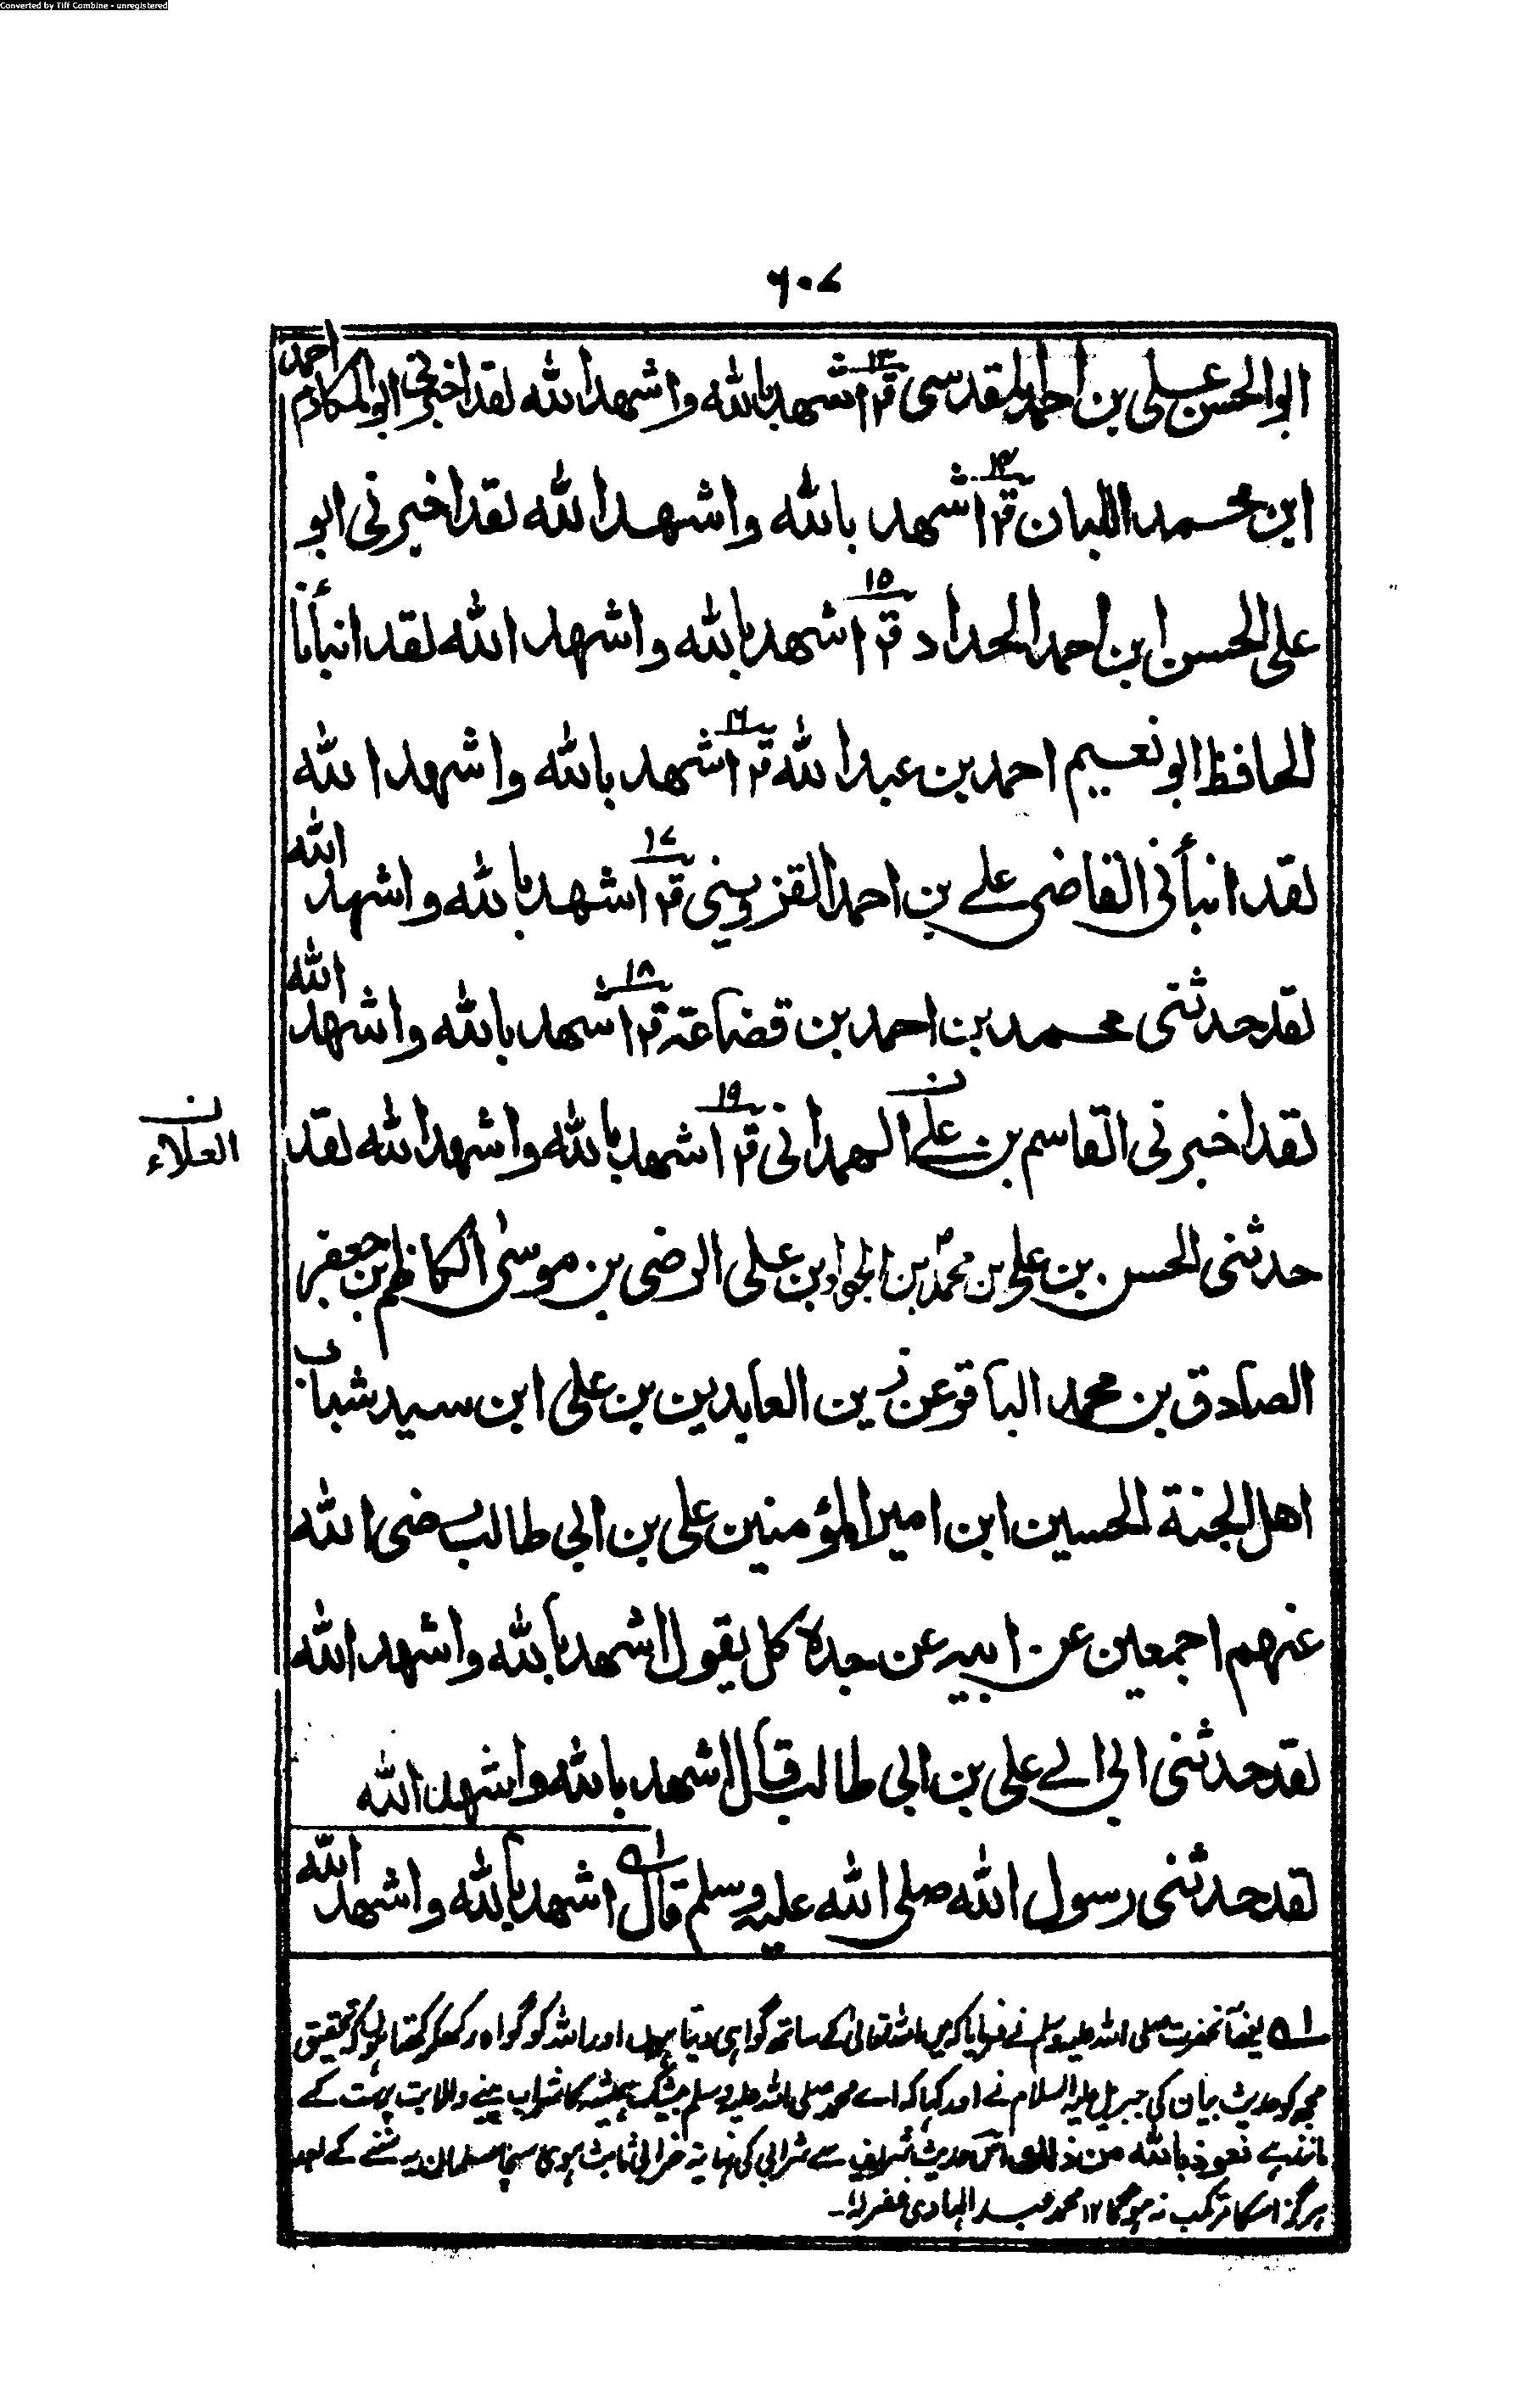 Converted by Tiff Combine - unregistered
٦٠٧
ابوالحسن علی بن احمدالمقدسی ١٣ قال اشهد بالله واشهدالله لقد اخبرنی ابوالمکارم احمد
ابن محمد اللبان ١٤ قال اشهد بالله واشهدالله لقد اخبرنی ابو
علی الحسن ابن احمدالحداد ١٥ قال اشهد بالله واشهد الله لقد انبأنا
الحافظ ابو نعیم احمد بن عبدالله ١٦ قال اشهد بالله واشهد الله
لقد انبأنی القاضی علی بن احمدالقزوینی ١٧ قال اشهد بالله واشهد الله
لقد حدثنی محمد بن احمد بن قضاعة ١٨ قال اشهد بالله واشهد الله
لقد اخبرنی القاسم بن علی الهمدانی ١٩ قال اشهد بالله واشهدالله لقد
ن
العلاء
حدثنی الحسن بن علی بن محمد بن الجواد بن علی الرضی بن موسیٰ الکاظم بن جعفر
الصادق بن محمد الباقر عن زین العابدین بن علی ابن سید شباب
اهل الجنة الحسین ابن امیرالمؤمنین علی بن ابی طالب رضی الله
عنهم اجمعین عن ابیه عن جده کل یقول اشهد بالله واشهد الله
لقد حدثنی ابی علی بن ابی طالب قال اشهد بالله واشهد الله
لقد حدثنی رسول الله صلی الله علیه وسلم قال اشهد بالله واشهد الله
یعنی آنحضرت صلی الله علیه وسلم نے فرمایا کہ میں الله تعالیٰ کے ساتھ گواہی دیتا ہوں اور الله کو گواہ رکھکر کہتا ہوں کہ تحقیق
مجھ کو حدیث بیان کی جبریل علیہ السلام نے اور کہا کہ اے محمد صلی الله علیہ وسلم بیشک ہمیشہ کا شراب پینے والا بت پرست کے
مانند ہے نعوذ بالله من ذلك اس حدیث شریف سے شرابی کی نہایت خرابی ثابت ہوئی سچا مسلمان یہ سننے کے بعد
ہرگز اسکا مرتکب نہ ہوگا ١٢ محمد عبدالہادی غفرلہ۔